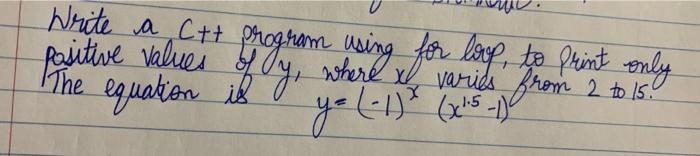 Write a C++ program using for loop, to Print only
positive values of y, where x varies from 2 to 15.
The equation is y = (-1)^x (x^1.5 - 1)